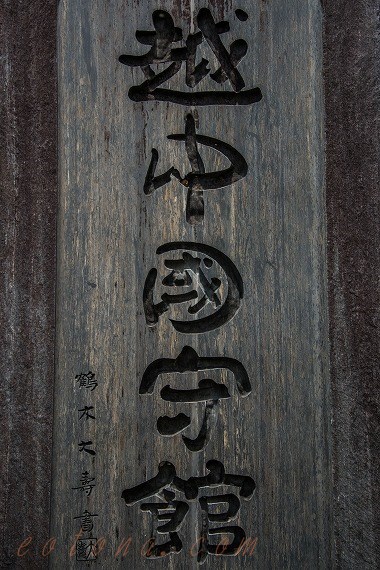 越中國守館
鶴木大壽書
eotona.com